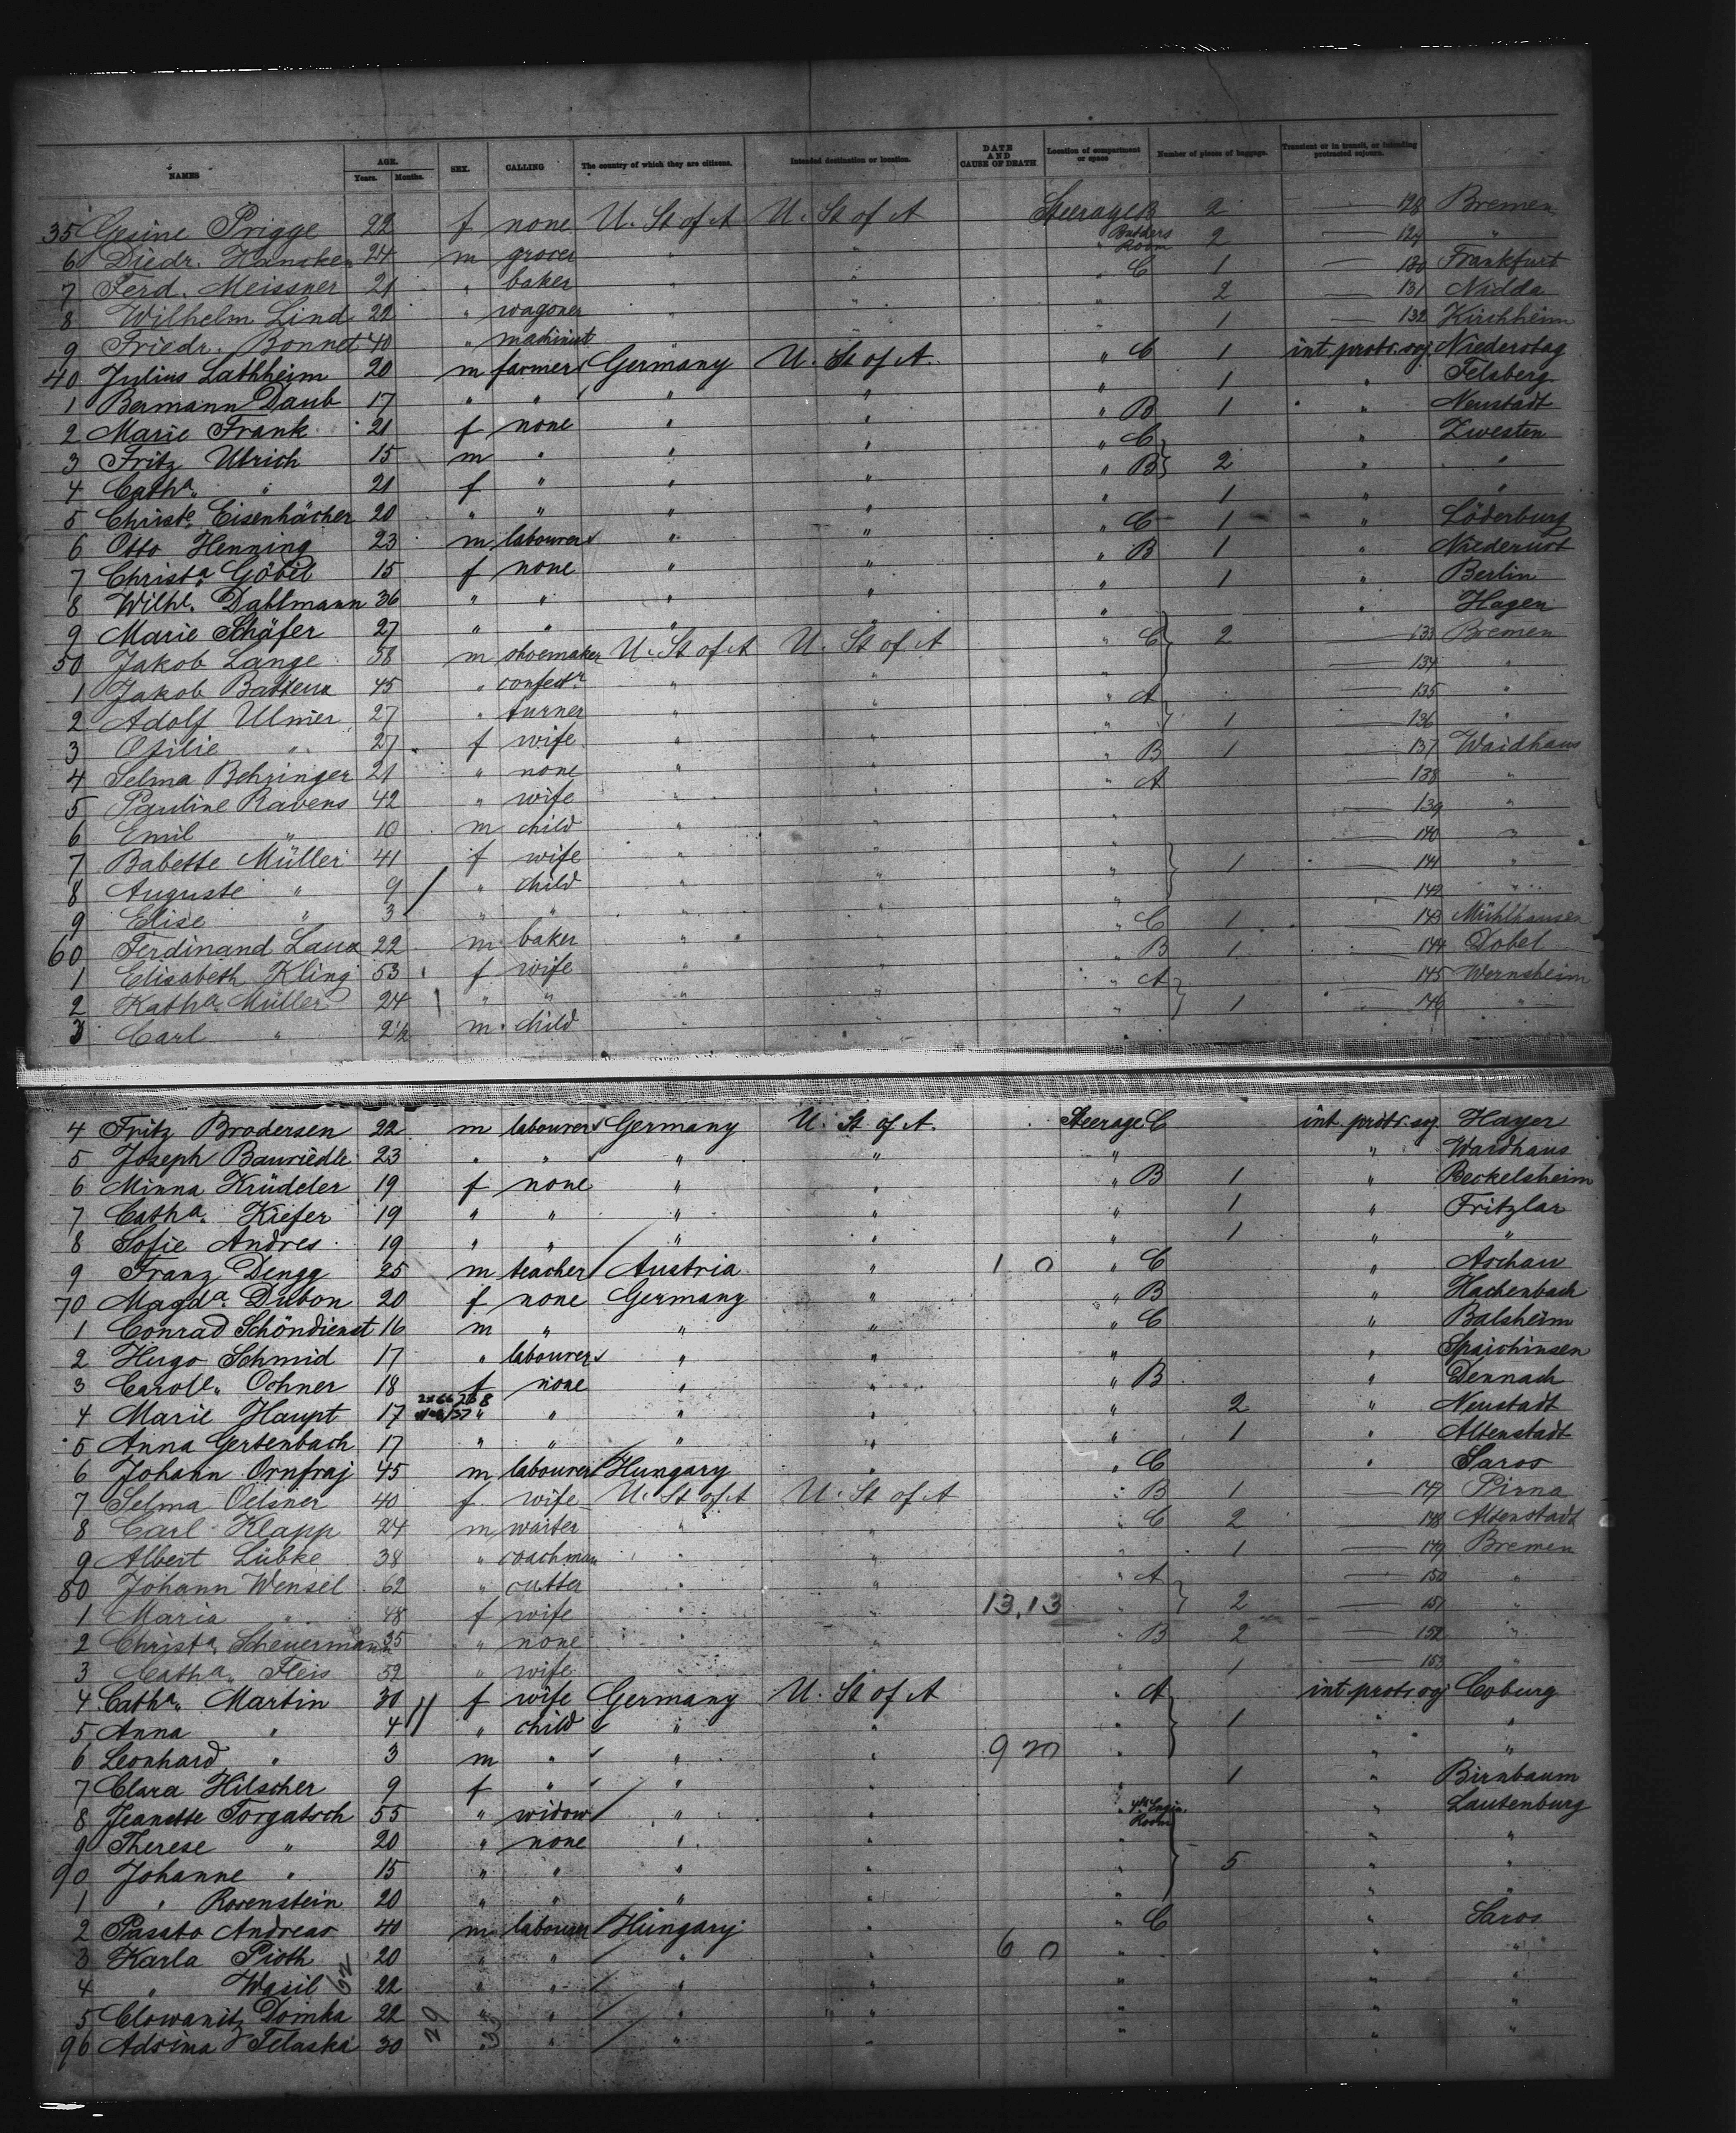 NAMES AGE. Years. Months. SEX. CALLING The country of which they are citizens. Intended destination or location. DATE AND CAUSE OF DEATH Location of compartment or space Number of pieces of baggage. Transient or in transit, or intending protracted sojourn.
35 Gesine Prigge 22 f none U. St of A U. St of A Steerage B 2 — 128 Bremen
6 Diedr. Hancken 24 m grocer " " " Bakers Room 2 — 129 "
7 Ferd. Meissner 21 " baker " " " C 1 — 130 Frankfurt
8 Wilhelm Lind 22 " wagoner " " " 2 — 131 Nidda
9 Friedr. Bonnet 40 " machinist " " " 1 — 132 Kirchheim
40 Julius Lathheim 20 m farmer Germany U. St of A. " C 1 int. protr. soj Niederotag
1 Bermann Daub 17 " " " " " 1 " Felsberg
2 Marie Frank 21 f none " " " B 1 " Neustadt
3 Fritz Ulrich 15 m " " " " C " Zwesten
4 Catha. " 21 f " " " " B 2 " "
5 Christe. Eisenhächer 20 " " " " " 1 " "
6 Otto Henning 23 m labourer " " " C 1 " Löderburg
7 Christa. Göbel 15 f none " " " B 1 "
8 Wilhe. Dahlmann 36 " " " " " 1 " Berlin
9 Marie Schäfer 27 " " " " " " Hagen
50 Jakob Lange 58 m shoemaker U. St of A U. St of A " C 2 — 133 Bremen
1 Jakob Batteux 45 " confectr. " " " — 134 "
2 Adolf Ulmer 27 " turner " " " A — 135 "
3 Otilie " 27 f wife " " " 1 — 136 "
4 Selma Behringer 21 " none " " " B 1 — 137 Waidhaus
5 Pauline Ravens 42 " wife " " " A — 138 "
6 Emil " 10 m child " " " — 139 "
7 Babette Müller 41 f wife " " " — 140 "
8 Auguste " 9 " child " " " 1 — 141 "
9 Elise " 3 " " " " " — 142 "
60 Ferdinand Laux 22 m baker " " " C 1 — 143 Mühlhausen
1 Elisabeth Kling 53 f wife " " " B 1 — 144 Dobel
2 Katha. Müller 24 " " " " " A — 145 Wernsheim
3 Carl " 2 1/2 m child " " " 1 — 146 "
4 Fritz Brodersen 22 m labourer Germany U. St of A. Steerage C int. protr. soj Hayer
5 Joseph Bauriedle 23 " " " " " " Wardhaus
6 Minna Krüdeler 19 f none " " " B 1 " Beckelsheim
7 Catha. Kiefer 19 " " " " " 1 " Fritzlar
8 Sofie Andres 19 " " " " " 1 " "
9 Franz Dengg 25 m teacher Austria " 1 0 " C " Aschau
70 Magda. Dubon 20 f none Germany " " B " Hachenbach
1 Conrad Schöndienst 16 m " " " " C " Balsheim
2 Hugo Schmid 17 " labourer " " " " Spaichinsen
3 Carole. Ochner 18 f none " " " B " Dennach
4 Marie Haupt 17 " " " " " 2 " Neustadt
5 Anna Gertenbach 17 " " " " " 1 " Altenstadt
6 Johann Ornfraj 45 m labourer Hungary " " C " Saros
7 Selma Oelsner 40 f wife U. St of A U. St of A " B 1 — 147 Pirna
8 Carl Klapp 24 m waiter " " " C 2 — 148 Altenstadt
9 Albert Lübke 38 " coachman " " " 1 — 149 Bremen
80 Johann Wensel 62 " cutter " " " A — 150 "
1 Maria " 48 f wife " " 13,13 " 2 — 151 "
2 Christa. Scheuermann 35 " none " " " B 2 — 152 "
3 Catha. Fleis 59 " wife " " " 1 — 153 "
4 Catha. Martin 30 f wife Germany U. St of A " A int. protr. soj Coburg
5 Anna " 4 " child " " " 1 " "
6 Leonhard " 3 m " " " 9 20 " " "
7 Clara Hilscher 9 f " " " " 1 " Birnbaum
8 Jeanette Torgatsch 55 " widow " " " 4th Engin. Room " Lautenburg
9 Therese " 20 " none " " " " "
90 Johanne " 15 " " " " " 5 " "
1 " Rosenstein 20 " " " " " " "
2 Passto Andreas 40 m labourer Hungary " " C " Saros
3 Karla Pioth 20 " " " " 6 0 " " "
4 " Wasil 62 22 " " " " " " "
5 Clowanitz Domka 22 29 " " " " " " "
96 Adsima Telaska 30 " 33 " " " " " "